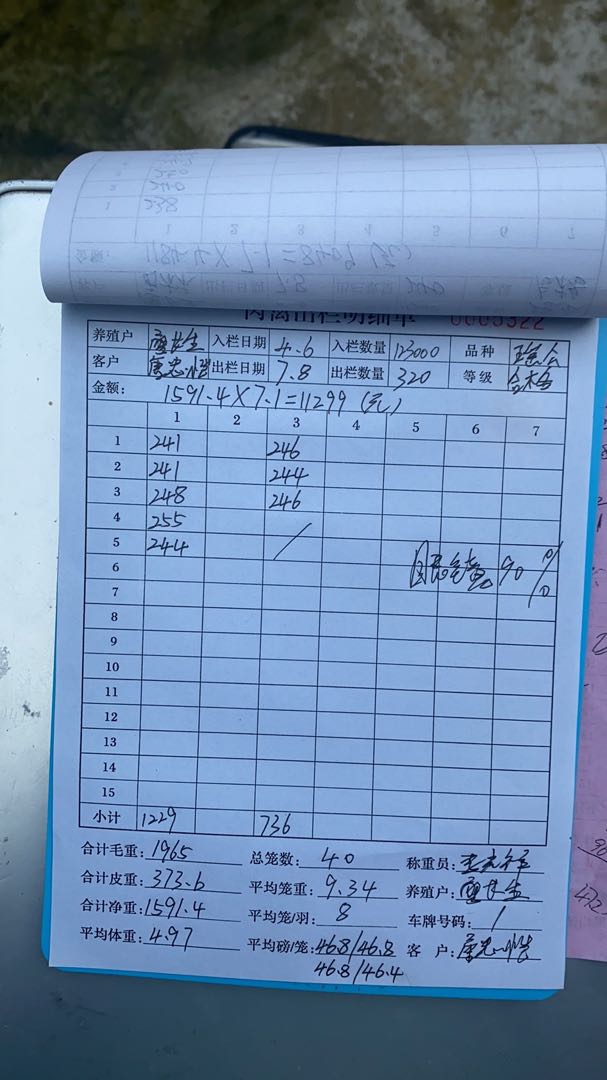 肉禽出栏明细单 0005322
养殖户 入栏日期 4.6 入栏数量 123000 品种
客户 出栏日期 7.8 出栏数量 320 等级
金额: 1591.4×7.1=11299(元)
1 2 3 4 5 6 7
1 241 246
2 241 244
3 248 246
4 255
5 244 /
6 90%
7
8
9
10
11
12
13
14
15
小计 1229 736
合计毛重: 1965 总笼数: 40 称重员:
合计皮重: 373.6 平均笼重: 9.34 养殖户:
合计净重: 1591.4 平均笼/羽: 8 车牌号码: /
平均体重: 4.97 平均磅/笼: 46.8/46.8 客 户:
46.8/46.4